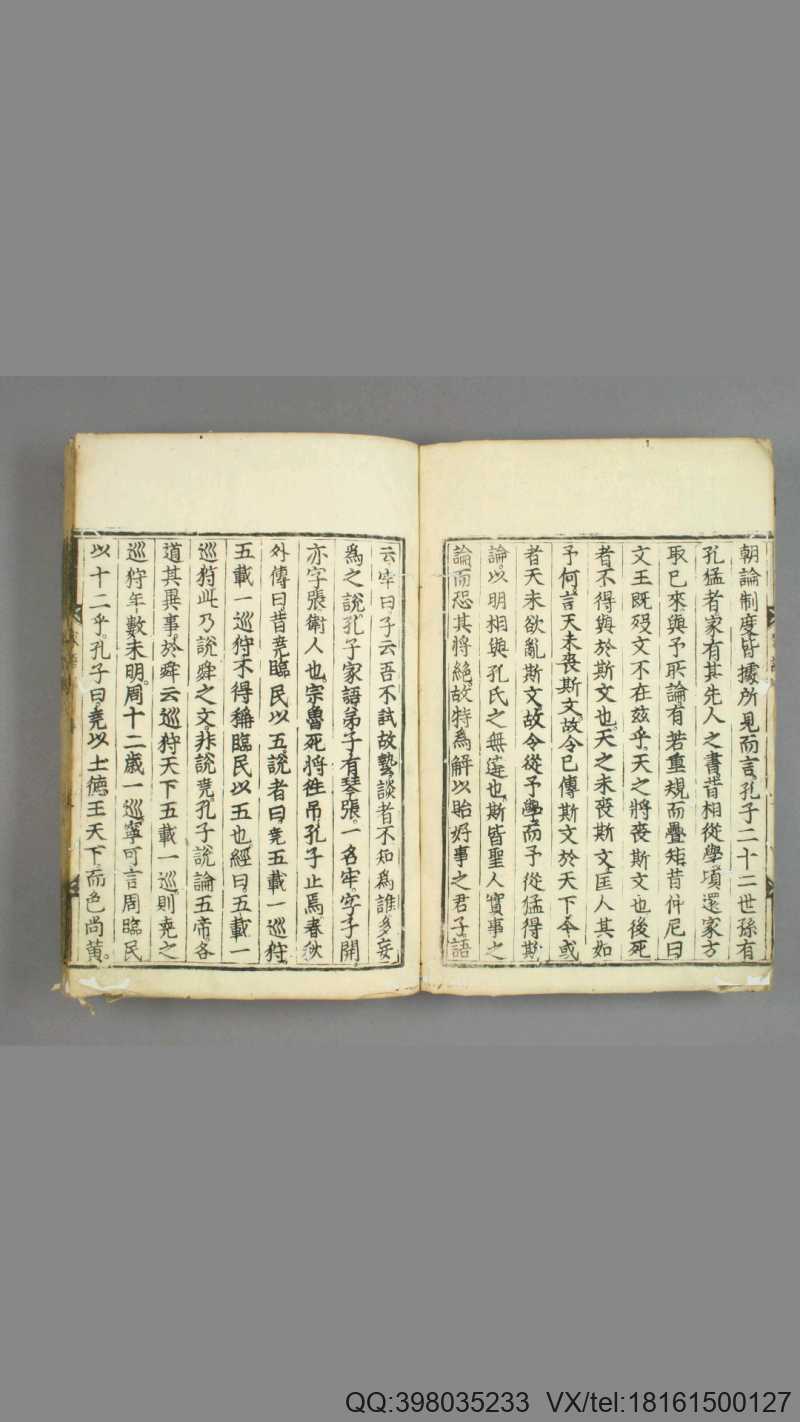 朝論制度皆據所見而言孔子二十二世孫有
孔猛者家有其先人之書昔相從學頃還家方
取已來與予所論有若重規而疊矩昔仲尼曰
文王既歿文不在茲乎天之將喪斯文也後死
者不得與於斯文也天之未喪斯文匡人其如
予何言天未喪斯文故令已傳斯文於天下今或
者天未欲亂斯文故令從予學而予從猛得斯
論以明相與孔氏之無違也斯皆聖人實事之
論而恐其將絕故特為解以貽好事之君子語
云牢曰子云吾不試故藝談者不知為誰多妄
為之說孔子家語弟子有琴張一名牢字子開
亦字張衛人也宗魯死將往吊孔子止焉春秋
外傳曰昔堯臨民以五說者曰堯五載一巡狩
五載一巡狩不得稱臨民以五也經曰五載一
巡狩此乃說舜之文非說堯孔子說論五帝各
道其異事於舜云巡狩天下五載一巡則堯之
巡狩年數未明周十二歲一巡寧可言周臨民
以十二乎孔子曰堯以土德王天下而色尚黃
QQ:398035233 VX/tel:18161500127